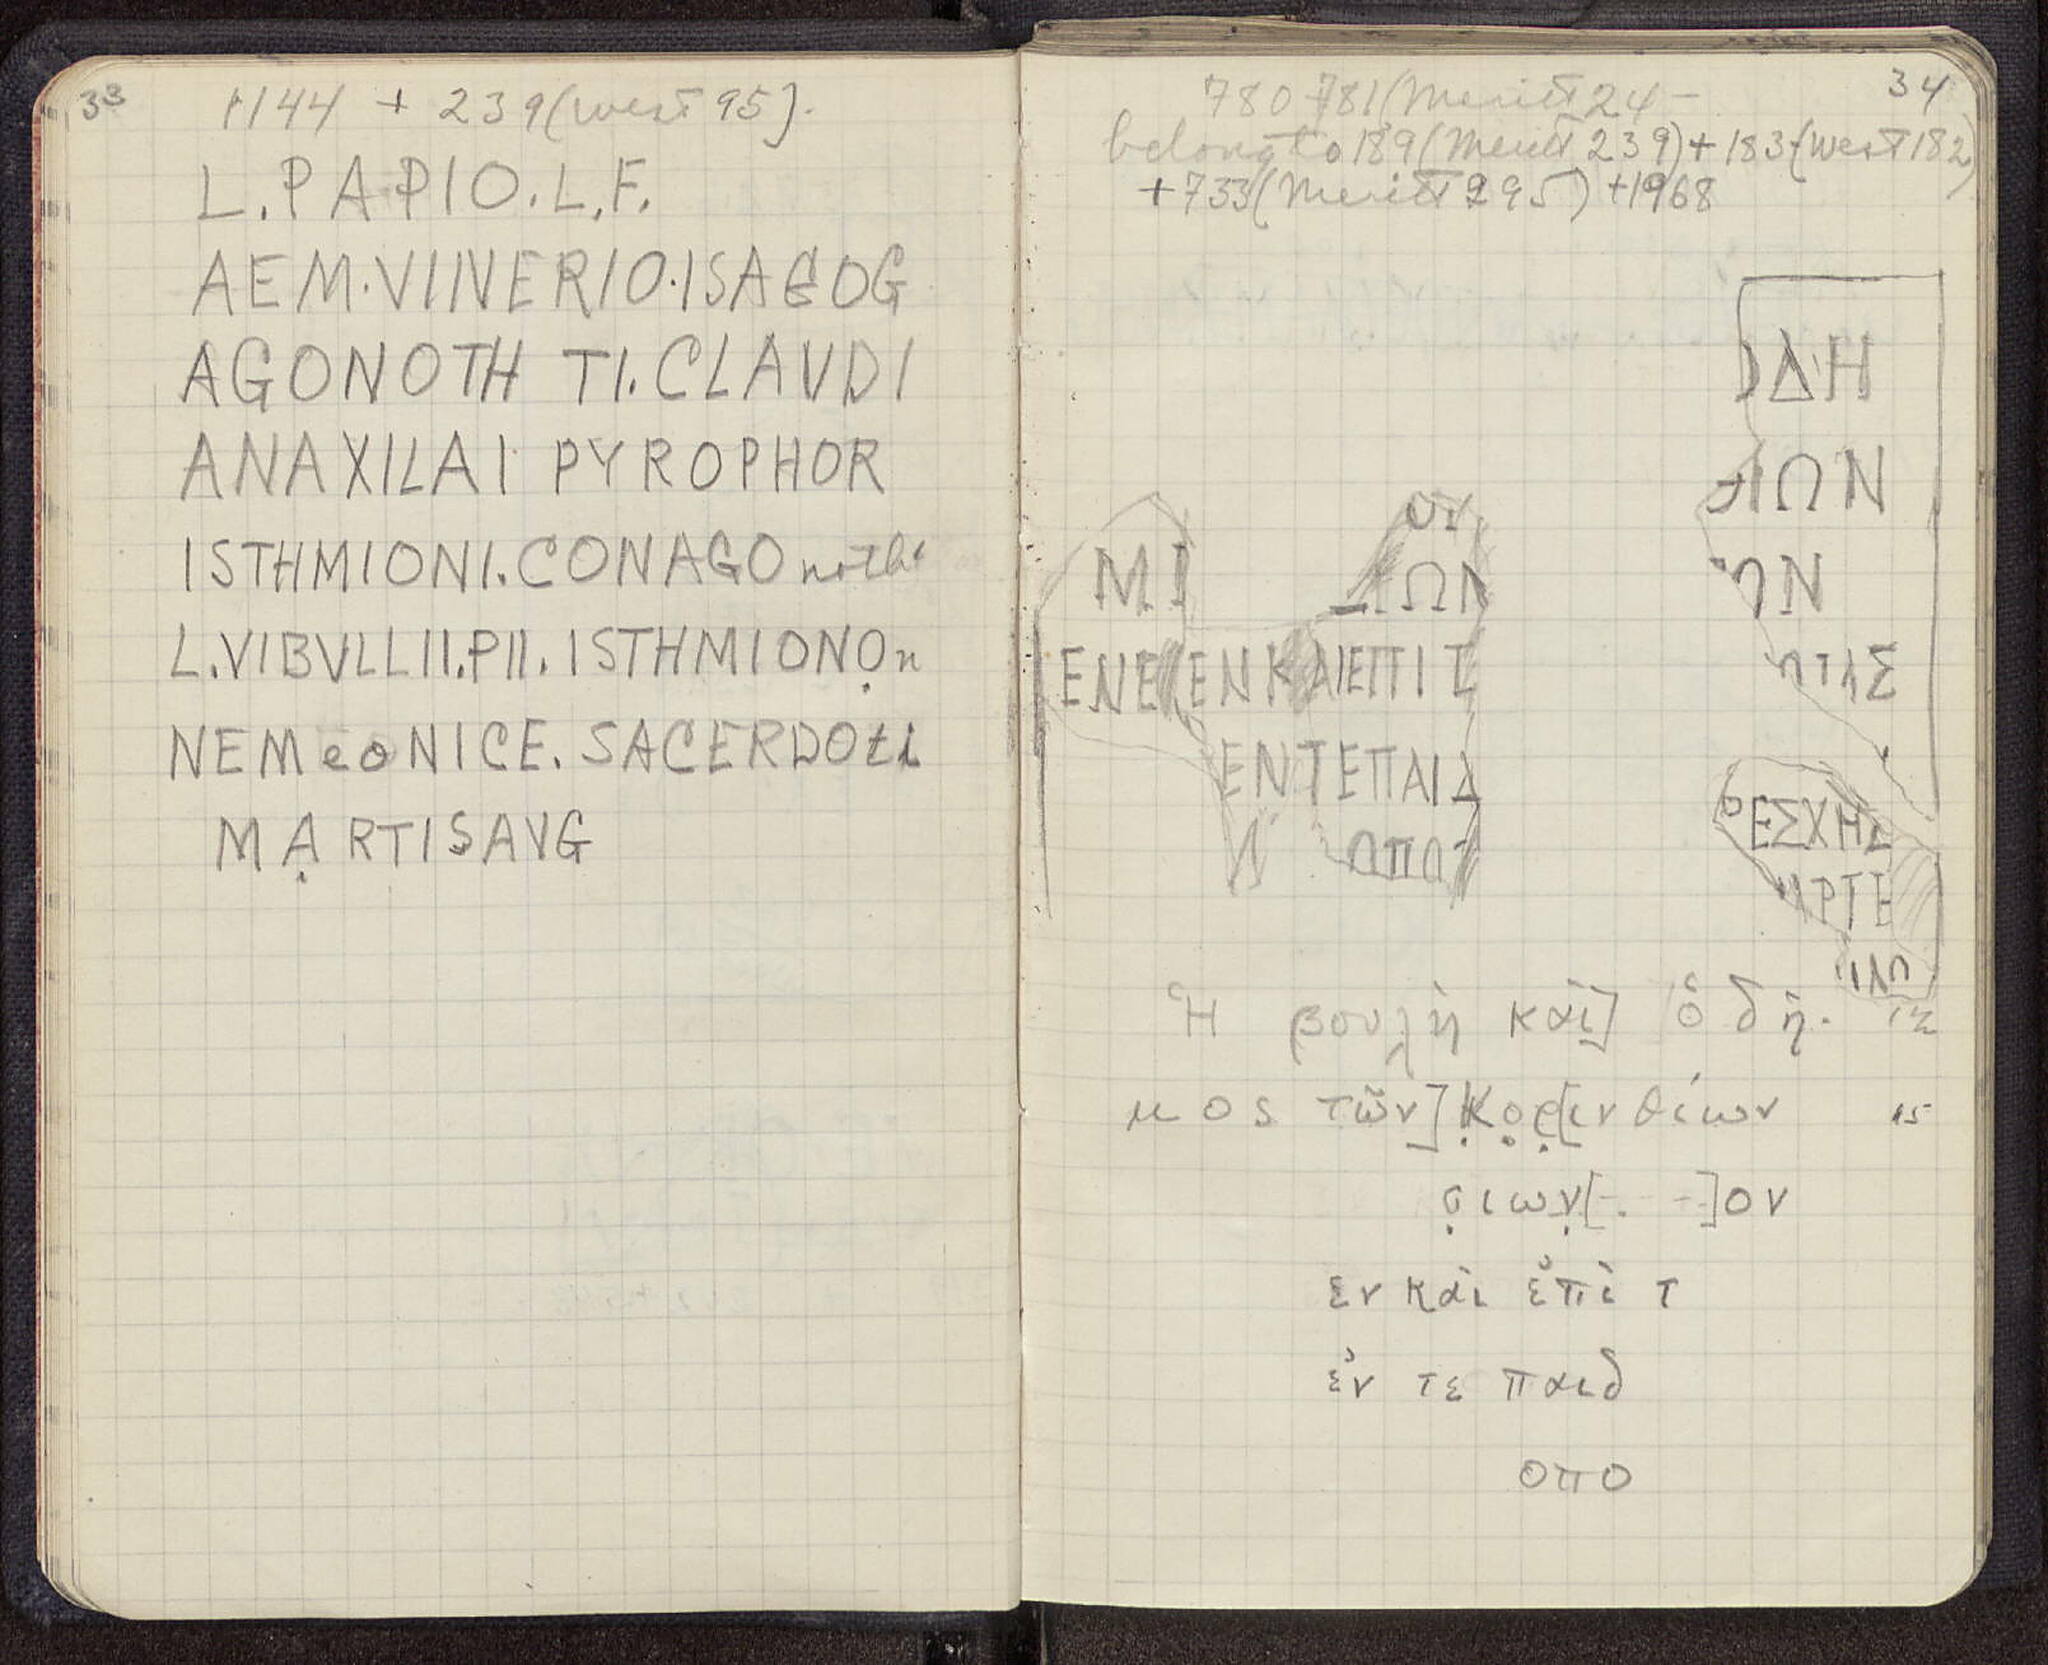 33
1144 + 239 (West 95).
L. PAPIO. L. F.
AEM. VINERIO. ISAGOG
AGONOTH TI. CLAVDI
ANAXILAI PYROPHOR
ISTHMIONI. CONAGOnoth
L. VIBVLLII. PII. ISTHMIONỌn
NEMeoNICE. SACERDOti
MẠRTISAVG
34
780-781 (Meritt 24-
belong to 189 (Meritt 239) + 183 (West 182)
+ 733 (Meritt 295) + 1968
ΟΔΗ
ΙΩΝ
ΩΝ
ΜΙ ΙΩΝ
ΕΝΕ ΕΝΚΑΙΕΠΙΤ
ΕΝΤΕΠΑΙΔ
ΟΠΟ
ΕΣΧΗΣ
ΑΡΤΕ
Ἡ βουλὴ καὶ] ὁ δῆ-
μος τῶν] Κ̣ο̣ρ̣[ινθίων 15
σ̣ιων̣[- - -]ον
εν καὶ ἐπὶ τ
ἔν τε παιδ
οπο